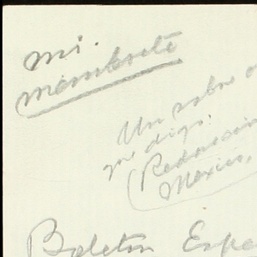 mi.
membrete
Un sobre
que diga:
(Redacción
Mexico,
Boletin